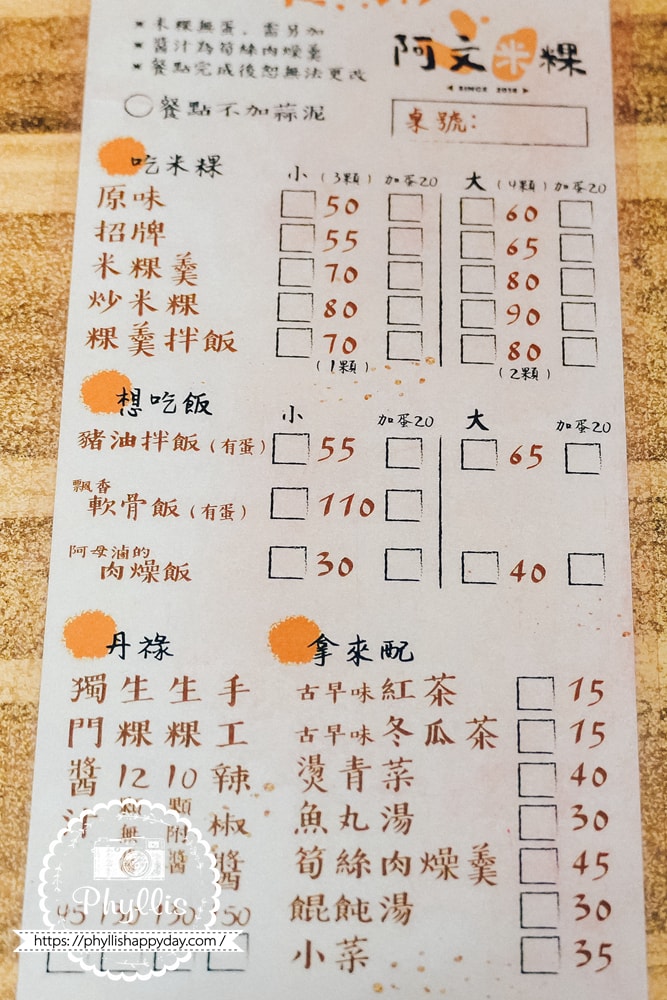 * 米粿無蛋、需另加
* 醬汁為筍絲肉燥羹
* 餐點完成後恕無法更改
餐點不加蒜泥
阿文米粿
SINCE 2016
桌號:
吃米粿 小 (3顆) 加蛋20 大 (4顆) 加蛋20
原味 50 60
招牌 55 65
米粿羹 70 80
炒米粿 80 90
粿羹拌飯 70 80
(1顆) (2顆)
想吃飯 小 加蛋20 大 加蛋20
豬油拌飯(有蛋) 55 65
飄香
軟骨飯(有蛋) 110
阿母滷的
肉燥飯 30 40
丹祿
獨門醬汁
生粿12顆無
生粿10顆附醬
手工辣椒醬 50
拿來配
古早味紅茶 15
古早味冬瓜茶 15
燙青菜 40
魚丸湯 30
筍絲肉燥羹 45
餛飩湯 30
小菜 35
Phyllis
https://phyllishappyday.com /